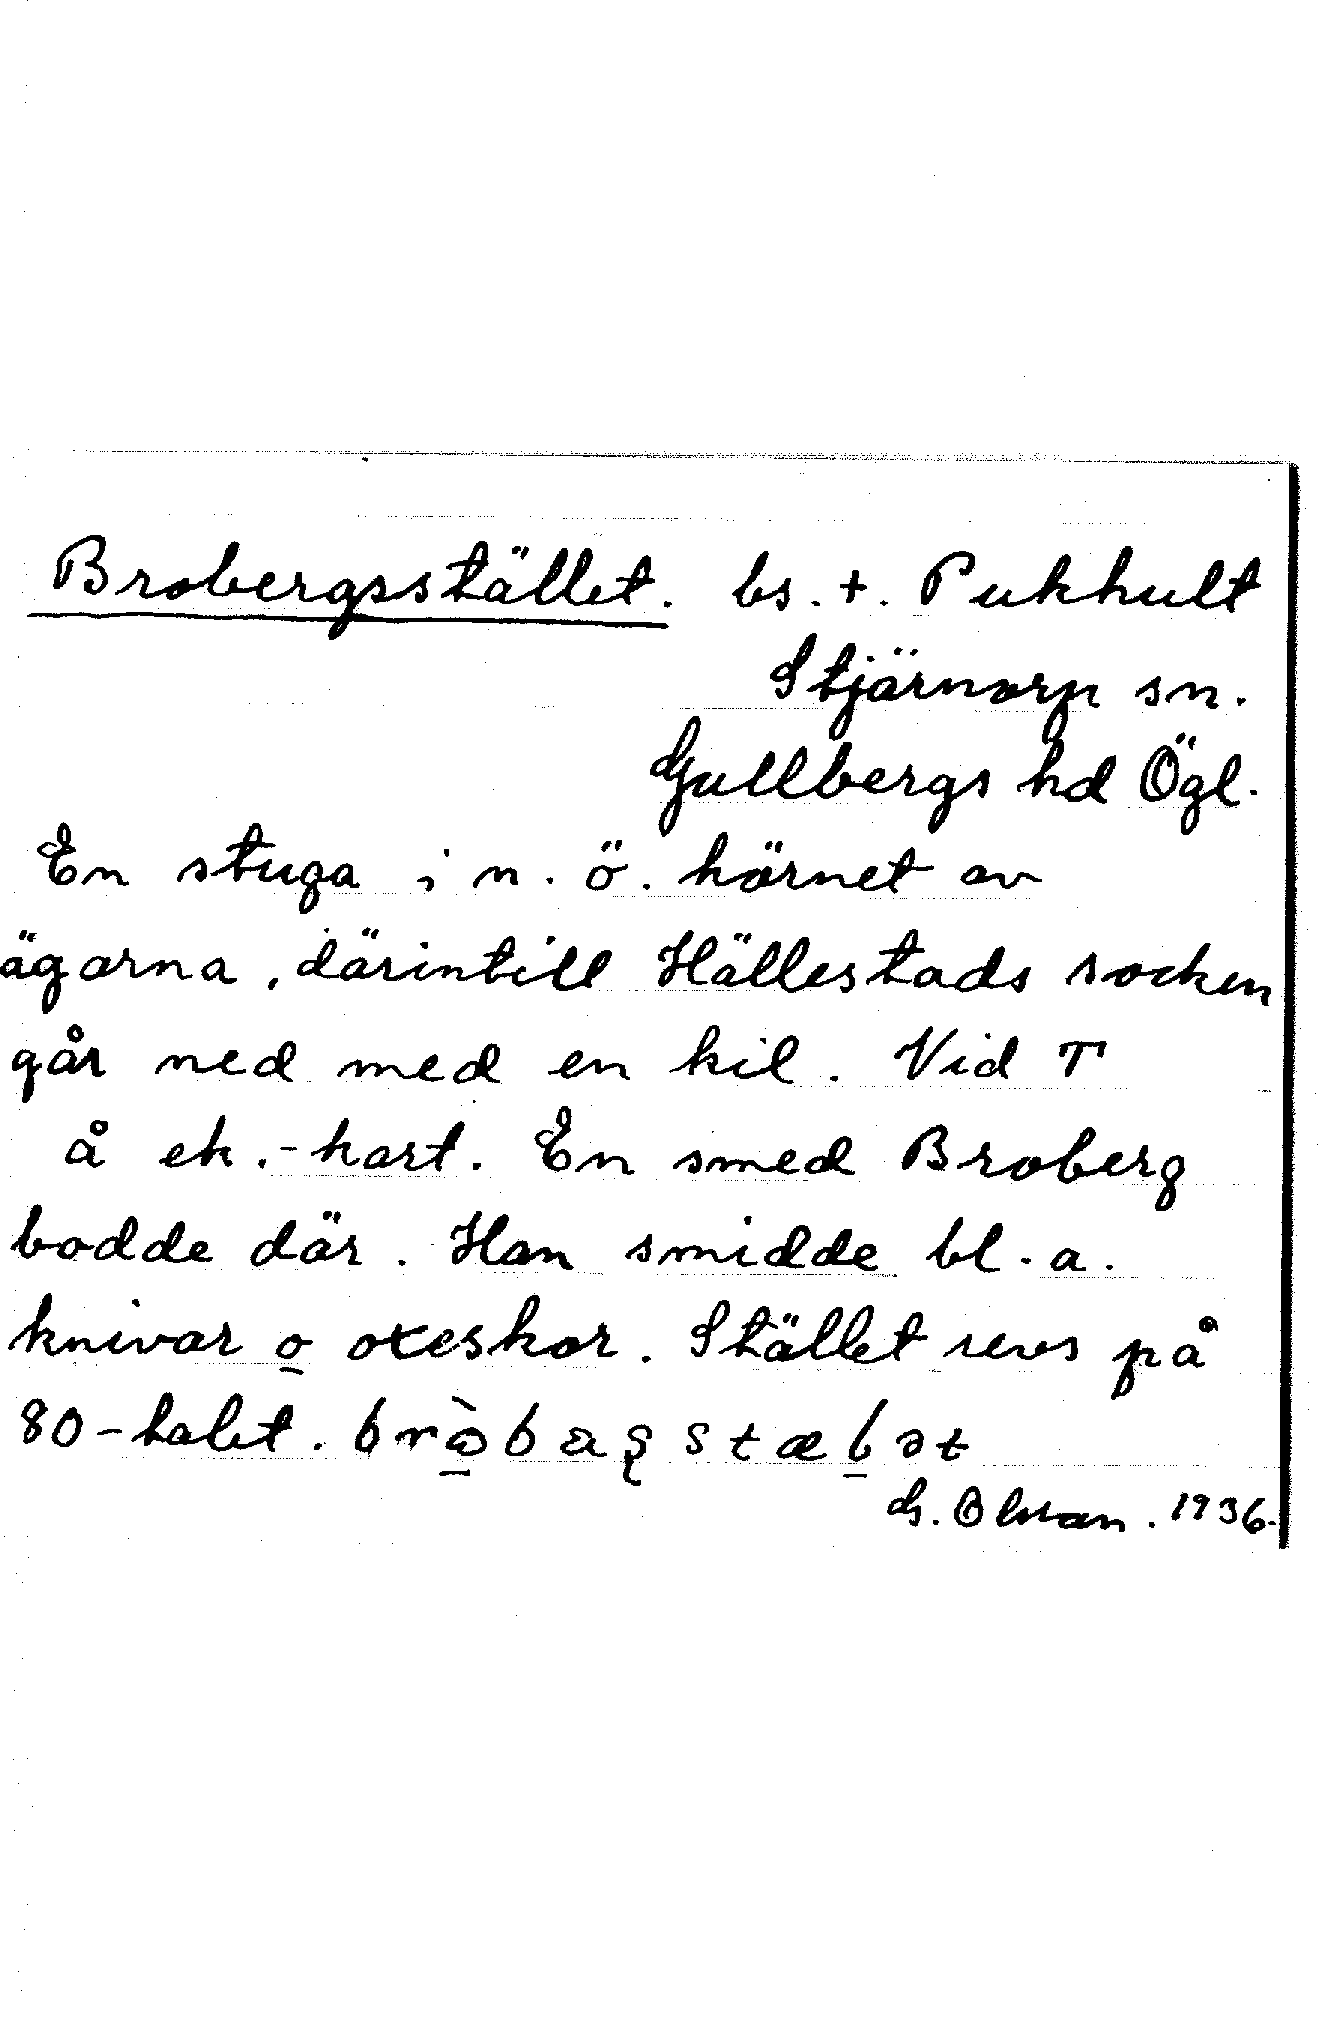 Brobergsstället. bs. +. Pukhult
Stjärnorp sn.
Gullbergs hd Ögl.
En stuga i n. ö. hörnet av
ägorna, därintill Hällestads socken
går ned med en kil. Vid T
å ek.-kart. En smed Broberg
bodde där. Han smidde bl. a.
knivar o oxeskor. Stället revs på
80-talet.
G. Olson. 1936.